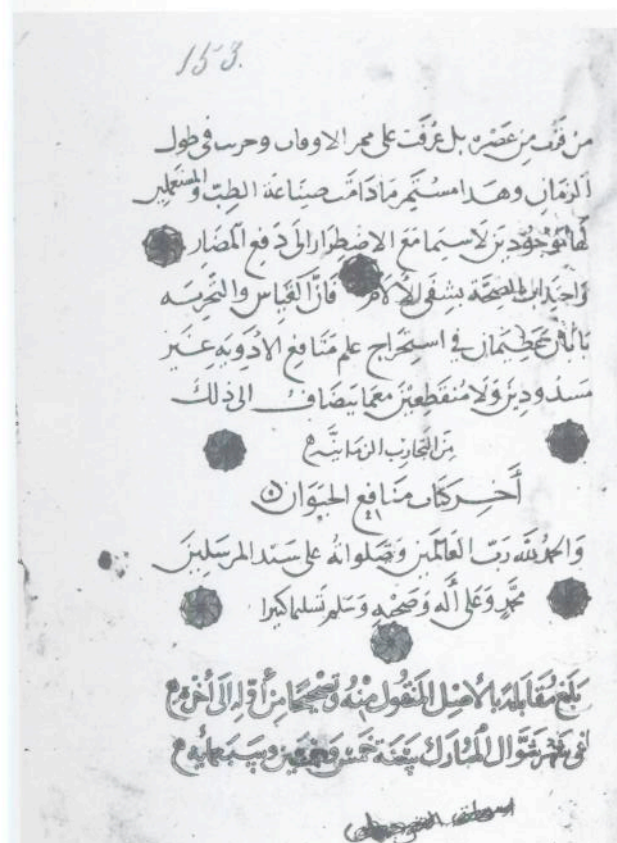 153.
من قرف من عصره بل عرفت على ممر الاوقات وحربت فى طول
الزمان وهدا مستمر ما دامت صناعة الطب والمستعملين
لها موجودين لا سيما مع الاضطرار الى دفع المضار
واجتذاب الصحة بشفى الآلام فان القياس والتجربه
بابان عظيمان فى استخراج علم منافع الادويه غير
مسدودين ولا منقطعين معما ينضاف الى ذلك
من التجارب الزمانية
آخر كتاب منافع الحيوان
والحمد لله رب العالمين وصلواته على سيد المرسلين
محمد وعلى آله وصحبه وسلم تسليما كثيرا
بلغ مقابلة بالأصل المنقول منه وتصحيحا من أوله الى آخره
فى شهر شوال المبارك سنة خمس وخمسين وسبعمايه